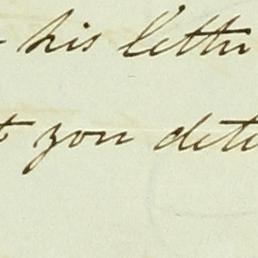 his letter
you dete